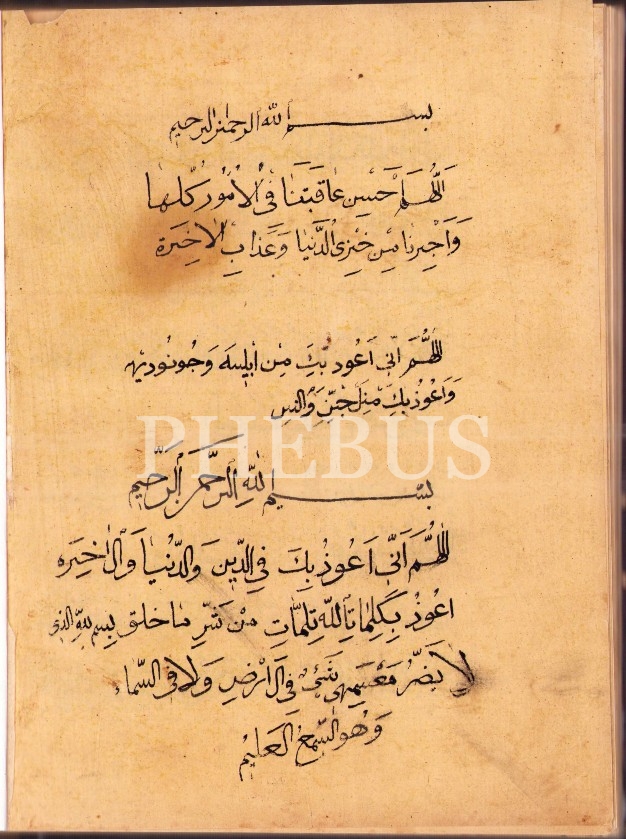 بسم الله الرحمن الرحيم
اَللّٰهُمَّ اَحْسِن عَاقَبَتَنَا فِى الْاُمُور كُلّهَا
وَاَجِيرنَا مِن خِزِى الدُّنْيَا وَعَذَابِ الْاخِيرَة
اللّٰهُمَّ اِنّى اَعُوذ بِكَ مِن ابليسه وَجُونُودِيهِ
وَاَعُوذ بِكَ مِنَل جِنِّ وَالنسِ
PHEBUS
بسم اللهِ الرَّحْمَنِ الرَّحِيم
اللّٰهُمَّ اَنّى اَعُوذُ بِكَ فِى الدِّين وَالدُّنْيَا وَالْ اٰخِيره
اعُوذ بِكَلِمَاتِ اللهِ تِلمَّاتِ مِنْ شَرِّ مَا خلق بِسم للهِ الذى
لَا يَضرُّ مَعَسمِهِ شَىْءٌ فِى الْ اَرْضِ وَلَا فِى السَّمَاء
وَهُو السّمعُ الْعَلِيمُ